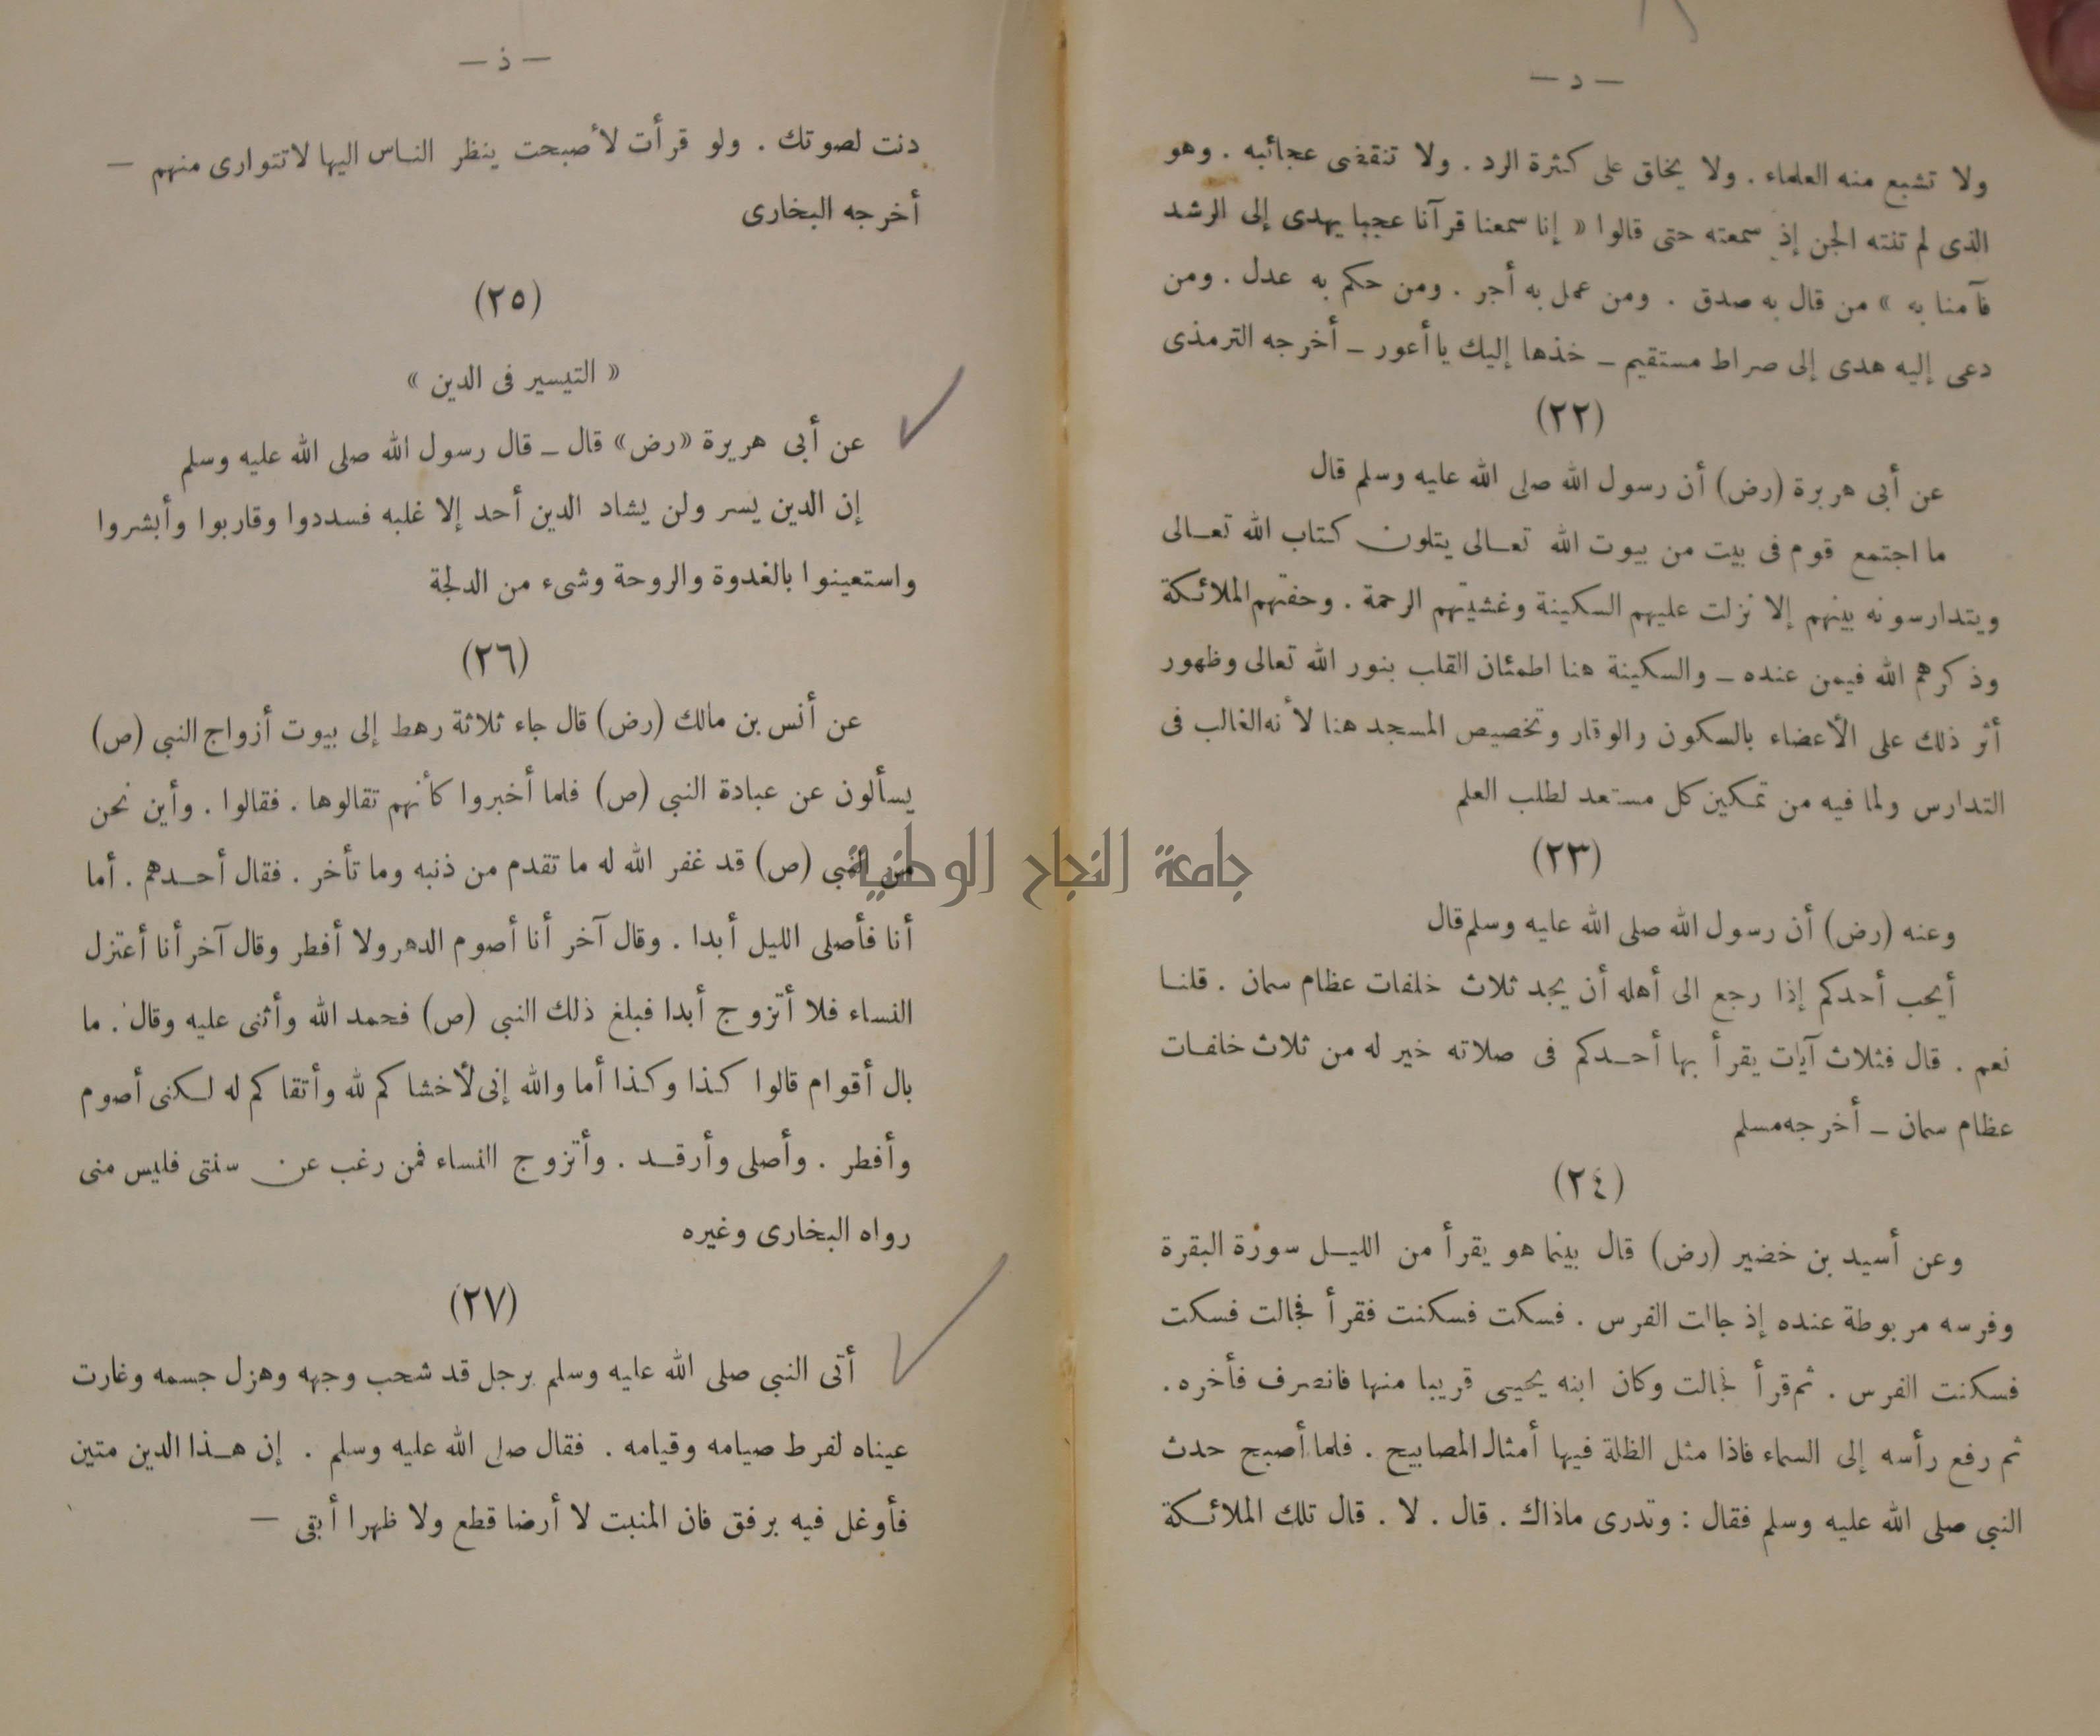 — د —
ولا تشبع منه العلماء . ولا يخلق على كثرة الرد . ولا تنقضى عجائبه . وهو
الذى لم تنته الجن إذ سمعته حتى قالوا « إنا سمعنا قرآنا عجبا يهدى إلى الرشد
فآمنا به » من قال به صدق . ومن عمل به أجر . ومن حكم به عدل . ومن
دعى إليه هدى إلى صراط مستقيم ــ خذها إليك يا أعور ــ أخرجه الترمذى
(٢٢)
عن أبى هريرة (رض) أن رسول الله صلى الله عليه وسلم قال
ما اجتمع قوم فى بيت من بيوت الله تعالى يتلون كتاب الله تعالى
ويتدارسونه بينهم إلا نزلت عليهم السكينة وغشيتهم الرحمة . وحفتهم الملائكة
وذكرهم الله فيمن عنده ــ والسكينة هنا اطمئنان القلب بنور الله تعالى وظهور
أثر ذلك على الأعضاء بالسكون والوقار وتخصيص المسجد هنا لأنه الغالب فى
التدارس ولما فيه من تمكين كل مستعد لطلب العلم
(٢٣)
وعنه (رض) أن رسول الله صلى الله عليه وسلم قال
أيحب أحدكم إذا رجع الى أهله أن يجد ثلاث خلفات عظام سمان . قلنا
نعم . قال فثلاث آيات يقرأ بها أحدكم فى صلاته خير له من ثلاث خلفات
عظام سمان ــ أخرجه مسلم
(٢٤)
وعن أسيد بن خضير (رض) قال بينما هو يقرأ من الليل سورة البقرة
وفرسه مربوطة عنده إذ جالت الفرس . فسكت فسكنت فقرأ فجالت فسكت
فسكنت الفرس . ثم قرأ فجالت وكان ابنه يحيى قريبا منها فانصرف فأخره .
ثم رفع رأسه إلى السماء فاذا مثل الظلة فيها أمثال المصابيح . فلما أصبح حدث
النبى صلى الله عليه وسلم فقال : وتدرى ماذاك . قال . لا . قال تلك الملائكة
— ذ —
دنت لصوتك . ولو قرأت لأصبحت ينظر الناس اليها لا تتوارى منهم —
أخرجه البخارى
(٢٥)
« التيسير فى الدين »
عن أبى هريرة «رض» قال ــ قال رسول الله صلى الله عليه وسلم
إن الدين يسر ولن يشاد الدين أحد إلا غلبه فسددوا وقاربوا وأبشروا
واستعينوا بالغدوة والروحة وشىء من الدلجة
(٢٦)
عن أنس بن مالك (رض) قال جاء ثلاثة رهط إلى بيوت أزواج النبي (ص)
يسألون عن عبادة النبي (ص) فلما أخبروا كأنهم تقالوها . فقالوا . وأين نحن
من النبى (ص) قد غفر الله له ما تقدم من ذنبه وما تأخر . فقال أحدهم . أما
أنا فأصلى الليل أبدا . وقال آخر أنا أصوم الدهر ولا أفطر وقال آخر أنا أعتزل
النساء فلا أتزوج أبدا فبلغ ذلك النبي (ص) فحمد الله وأثنى عليه وقال . ما
بال أقوام قالوا كذا وكذا أما والله إنى لأخشاكم لله وأتقاكم له لكنى أصوم
وأفطر . وأصلى وأرقد . وأتزوج النساء فمن رغب عن سنتى فليس منى
رواه البخارى وغيره
(٢٧)
أتى النبي صلى الله عليه وسلم برجل قد شحب وجهه وهزل جسمه وغارت
عيناه لفرط صيامه وقيامه . فقال صلى الله عليه وسلم . إن هذا الدين متين
فأوغل فيه برفق فان المنبت لا أرضا قطع ولا ظهرا أبقى —
جامعة النجاح الوطنية